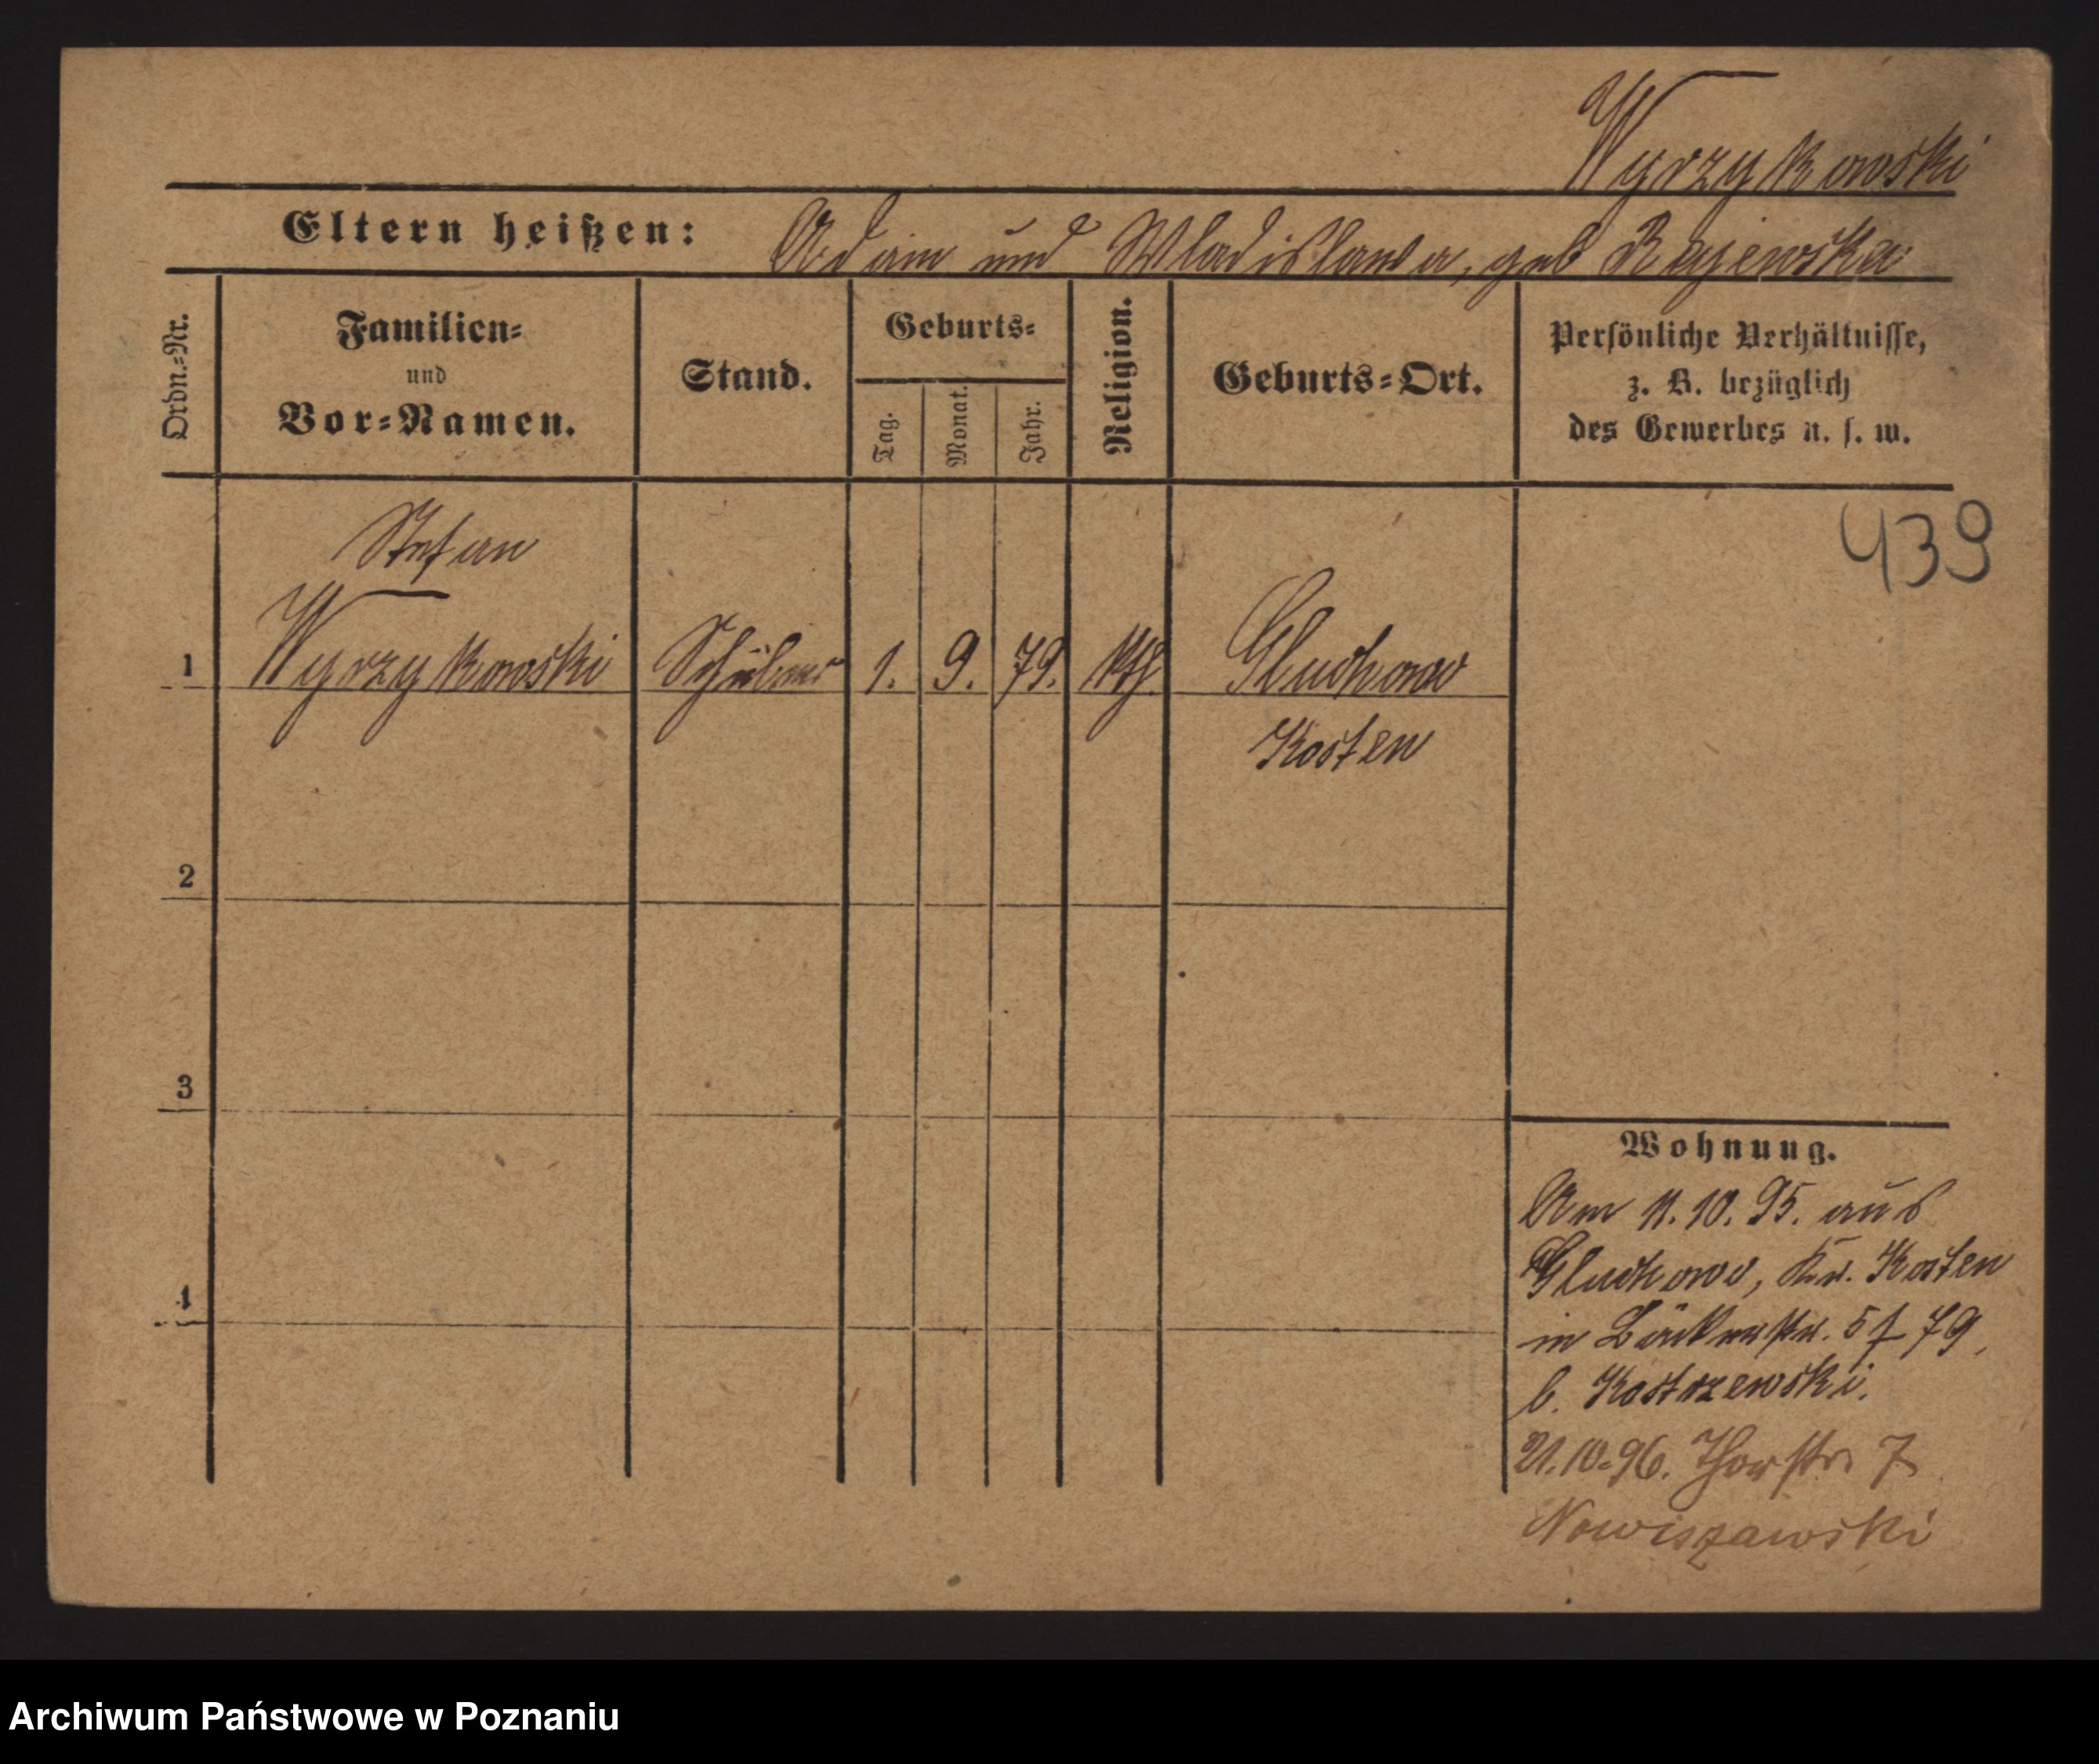 Wyrzykowski
Eltern heißen: Adam und Wladislawa, geb Rajewska
Ordn.=Nr.
Familien=
und
Vor=Namen.
Stand.
Geburts=
Tag.
Monat.
Jahr.
Religion.
Geburts=Ort.
Persönliche Verhältnisse,
z. B. bezüglich
des Gewerbes u. s. w.
439
Stefan
1 Wyrzykowski Schüler 1. 9. 79. kth. Gluchowo
Kosten
2
3
4
Wohnung.
Am 11.10.95. aus
Gluchowo, Kr. Kosten
in Bäckerstr. 5 f 79,
b. Kostrzewski.
21.10.96. Thorstr. 7
Nowiszawski
Archiwum Państwowe w Poznaniu